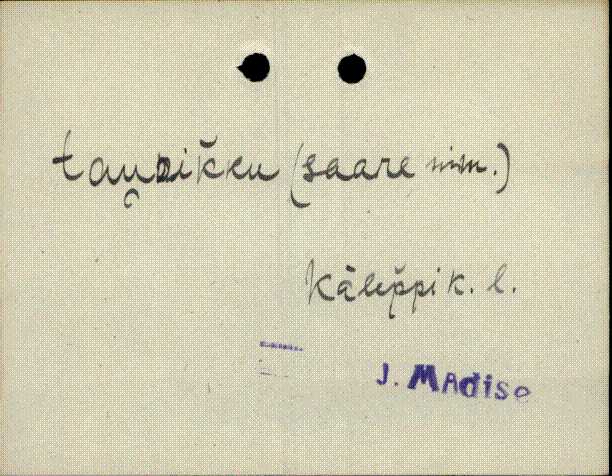 tau̯zik̆ku (saare nim.)
Kälep̆pi k. l.
J. MAdiso